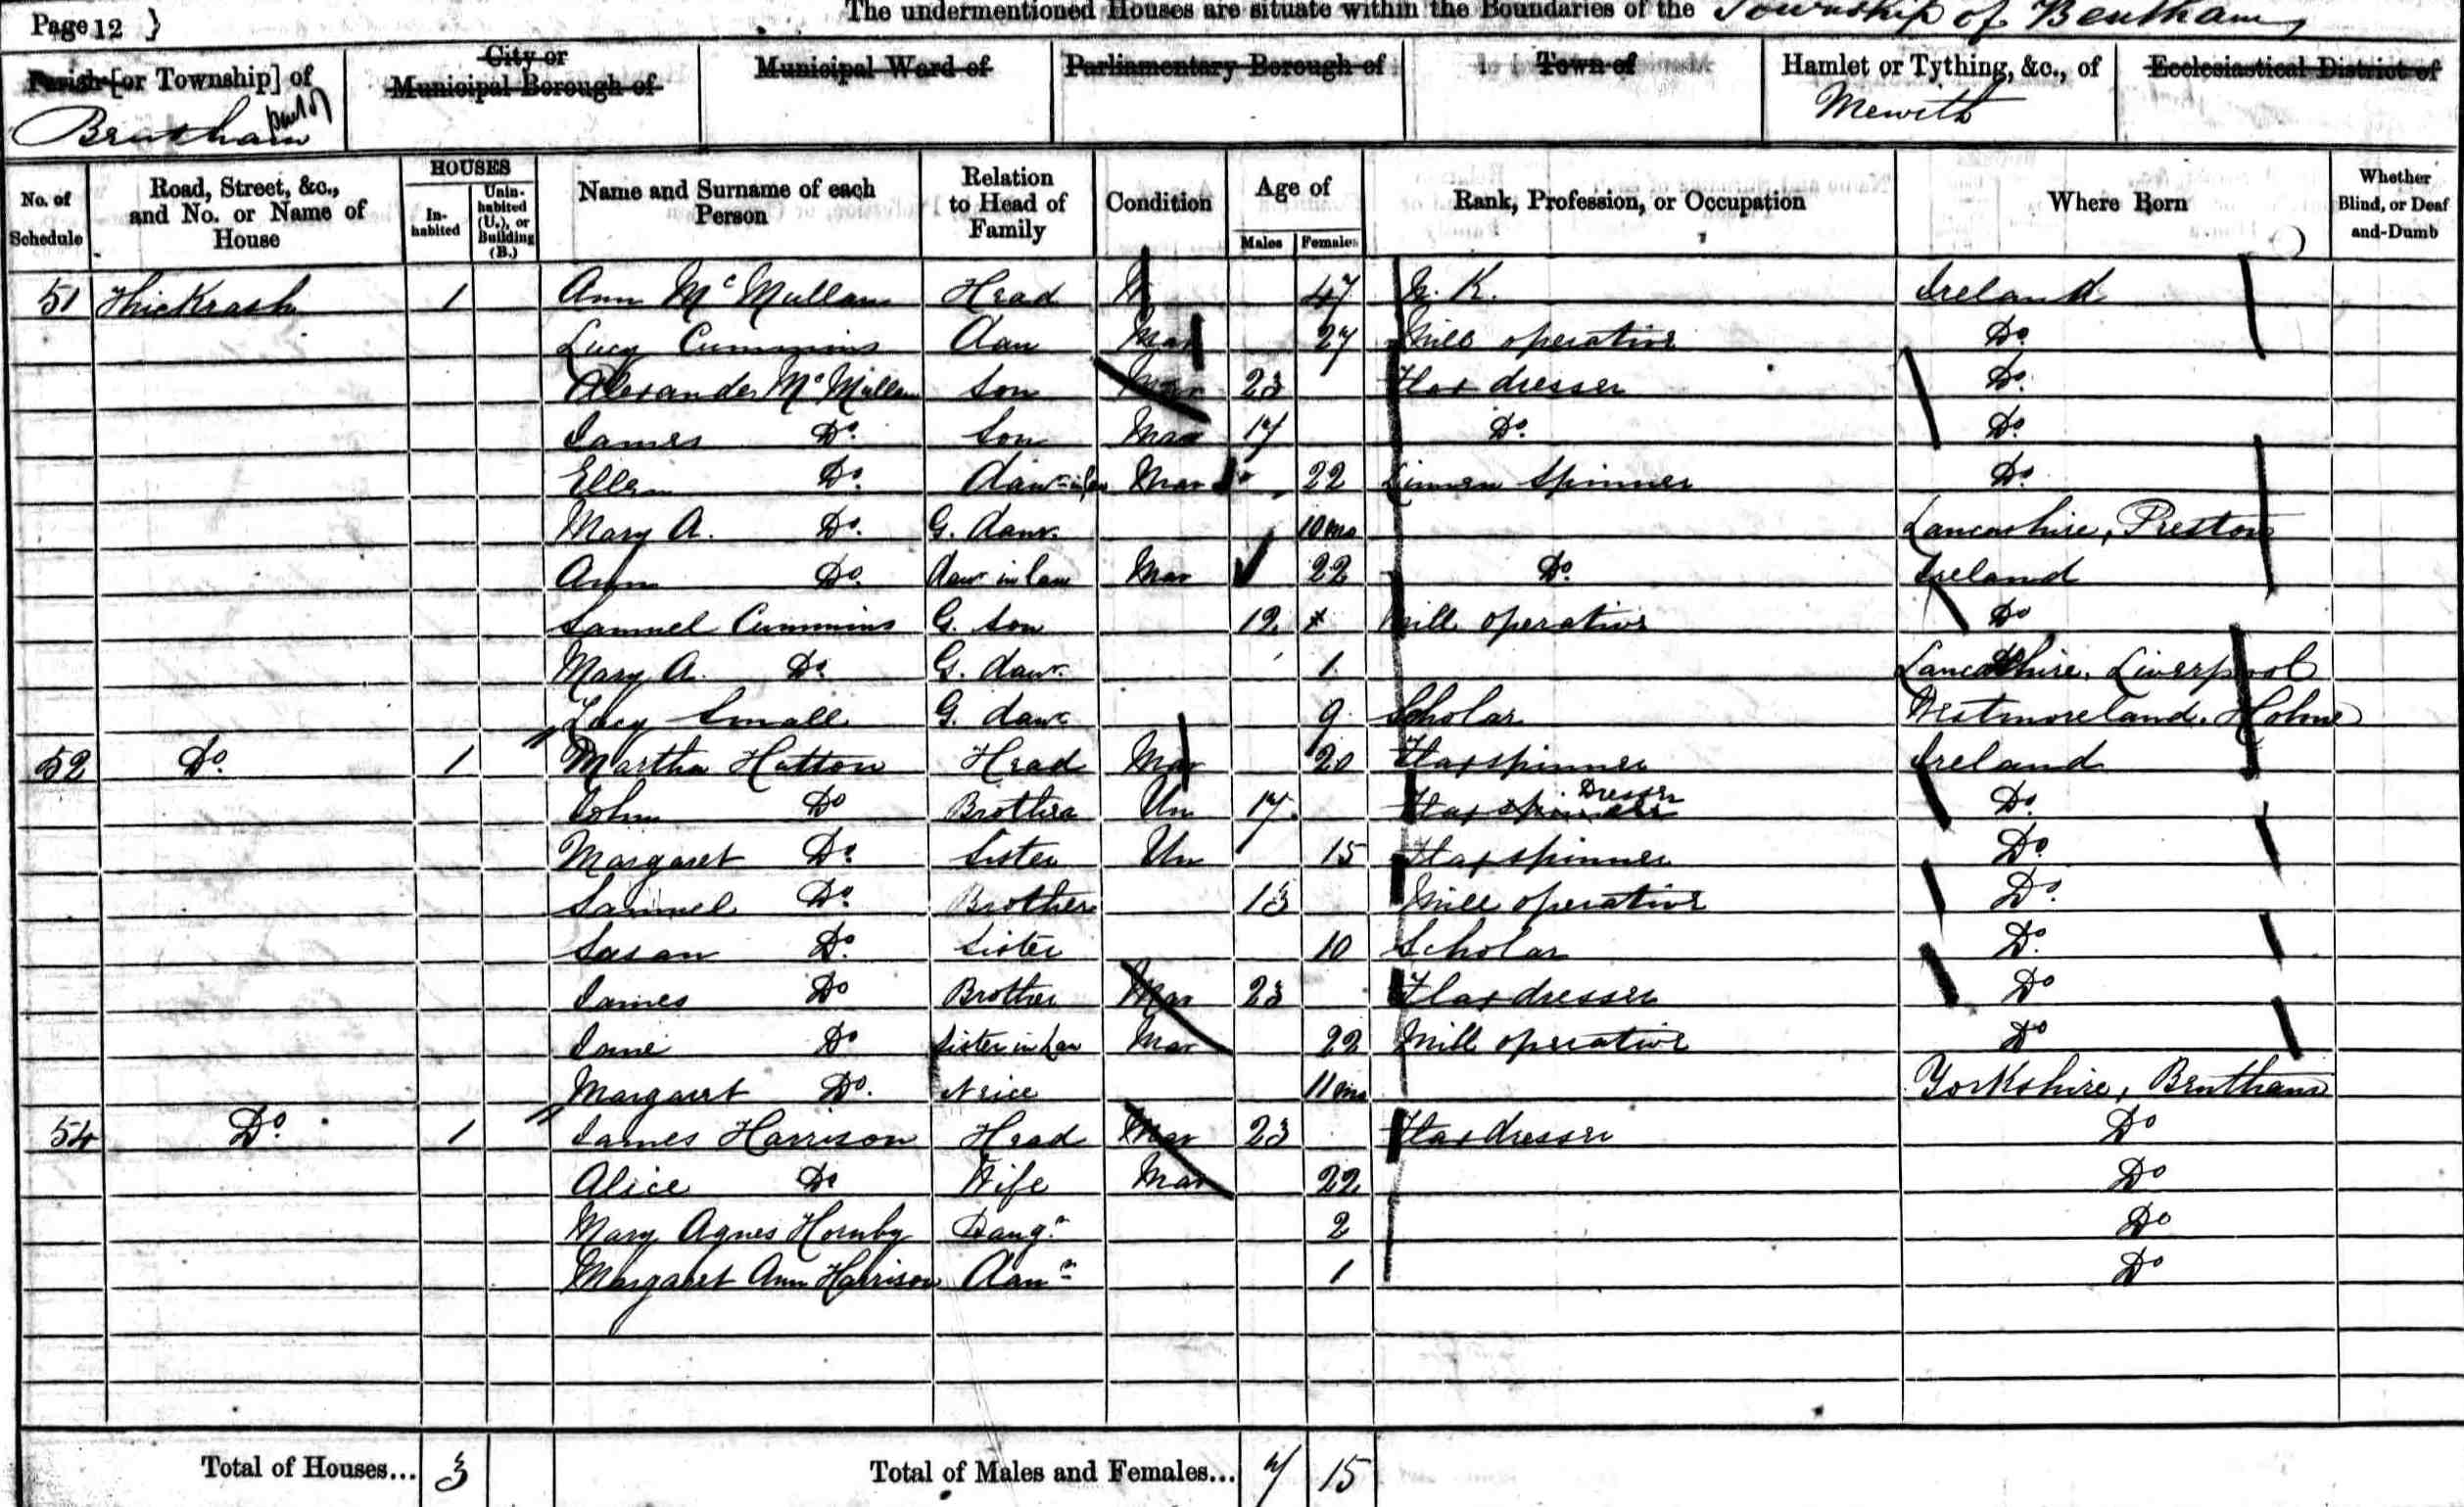 Page 12 } The undermentioned Houses are situate within the Boundaries of the Township of Bentham
Parish [or Township] of City or Municipal Borough of Municipal Ward of Parliamentary Borough of Town of Hamlet or Tything, &c., of Ecclesiastical District of
Bentham part of Mewith
No. of Schedule Road, Street, &c., and No. or Name of House HOUSES Inhabited Uninhabited (U.), or Building (B.) Name and Surname of each Person Relation to Head of Family Condition Age of Males Females Rank, Profession, or Occupation Where Born Whether Blind, or Deaf and-Dumb
51 Thickrash 1 Ann McMullan Head 47 Ireland
Lucy Cummins Dau Mar 27 Mill operative Do
Alexander McMullan Son Mar 23 Flax dresser Do
James Do Son Mar 17 Do Do
Ellen Do Daur in law Mar 22 Linnen Spinner Do
Mary A. Do G. daur 10 mo Lancashire, Preston
Ann Do daur in law Mar 22 Do Ireland
Samuel Cummins G. Son 12 Mill operative Do
Mary A. Do G. daur 1 Lancashire, Liverpool
Lucy Small G. daur 9 Scholar Westmoreland, Holme
52 Do 1 Martha Hatton Head Mar 20 Flax spinner Ireland
John Do Brother Un 17 Flax spinner Dresser Do
Margaret Do Sister Un 15 Flax spinner Do
Samuel Do Brother 13 Mill operative Do
Susan Do Sister 10 Scholar Do
James Do Brother Mar 23 Flax dresser Do
Jane Do Sister in Law Mar 22 Mill operative Do
Margaret Do Niece 11 mo Yorkshire, Bentham
54 Do 1 James Harrison Head Mar 23 Flax dresser Do
Alice Do Wife Mar 22 Do
Mary Agnes Hornby Daugr 2 Do
Margaret Ann Harrison Daur 1 Do
Total of Houses... 3 Total of Males and Females... 7 15